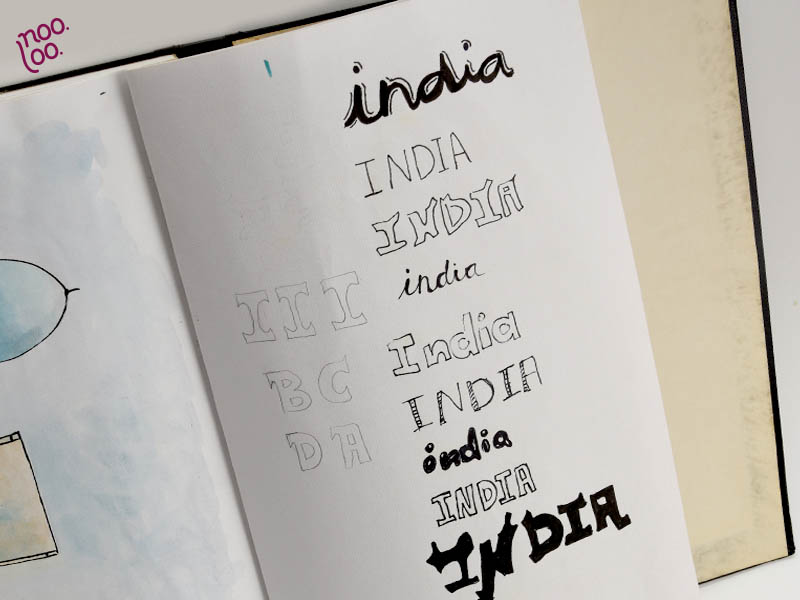 noo.
loo.
india
INDIA
INDIA
india
III
India
BC
INDIA
DA
india
INDIA
INDIA